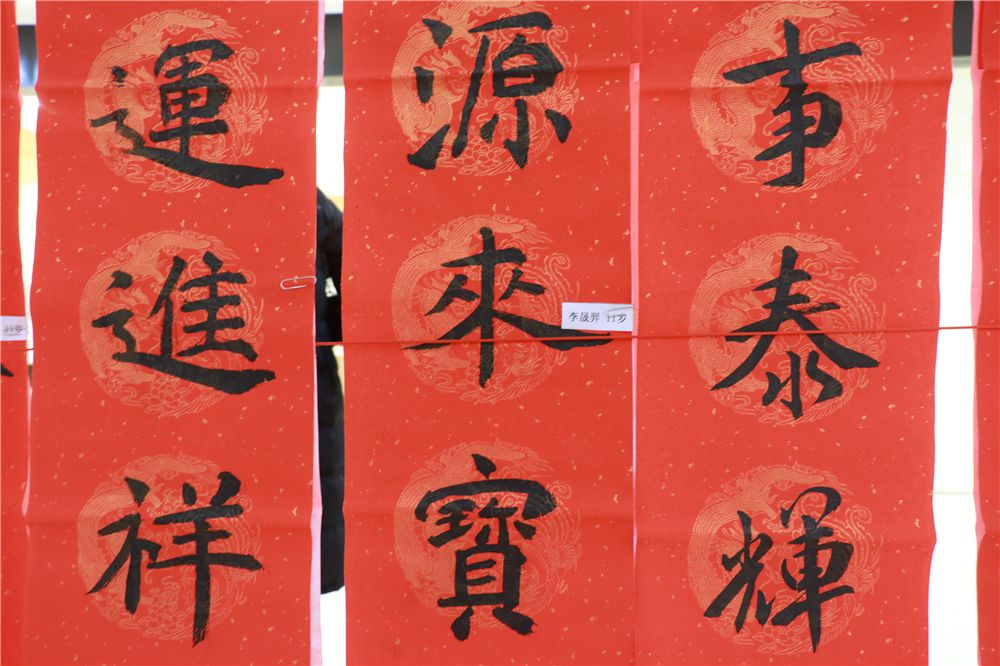 事泰輝
源來寶
李晟羿 11岁
運進祥
11岁